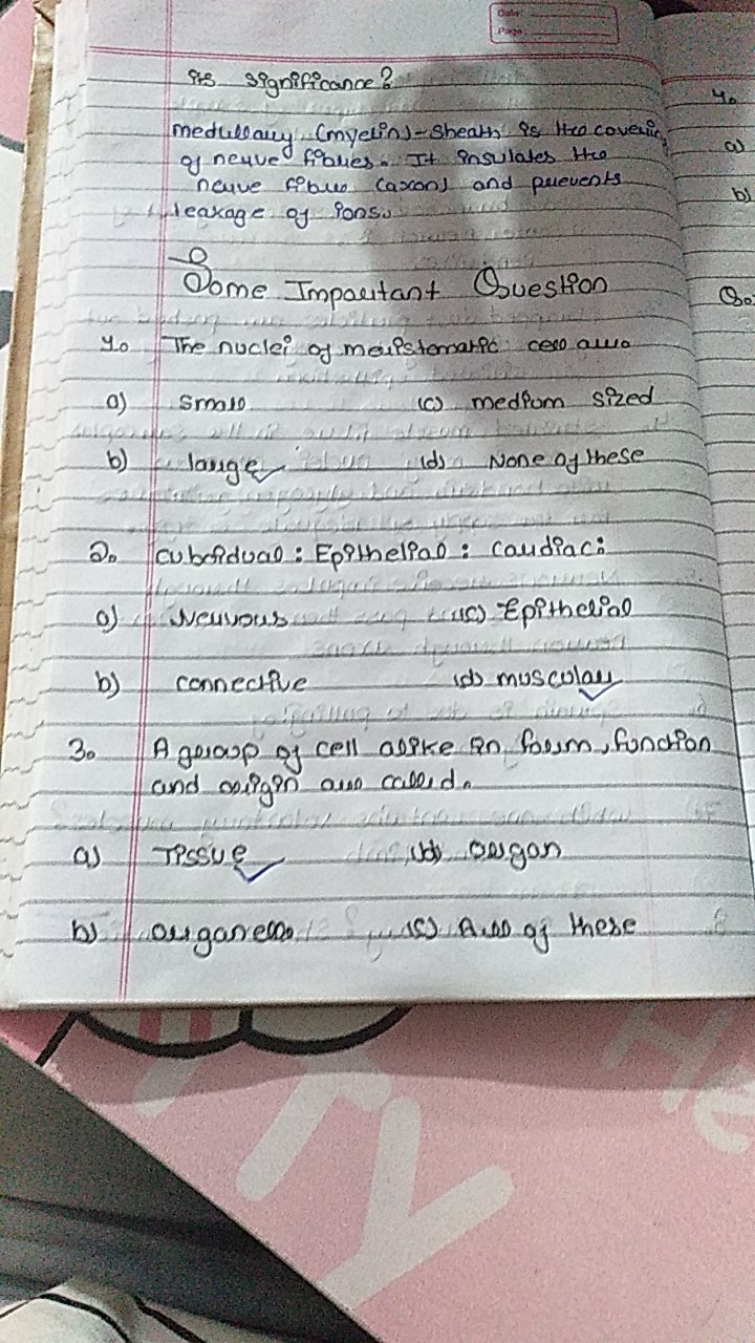 Date:
Page:
its significance?
medullary (myelin)-sheath is the covering
of nerve fibres. It insulates the
nerve fibre (axon) and prevents
leakage of ions.
Some Important Question
1. The nuclei of meristematic cell are
a) small (c) medium sized
b) large (d) None of these
2. cuboidual : Epithelial : cardiac :
a) Nervous (c) Epithelial
b) connective (d) muscular
3. A group of cell alike in form, function
and origin are called.
a) Tissue (b) Organ
b) organelle (c) All of these
4.
a)
b)